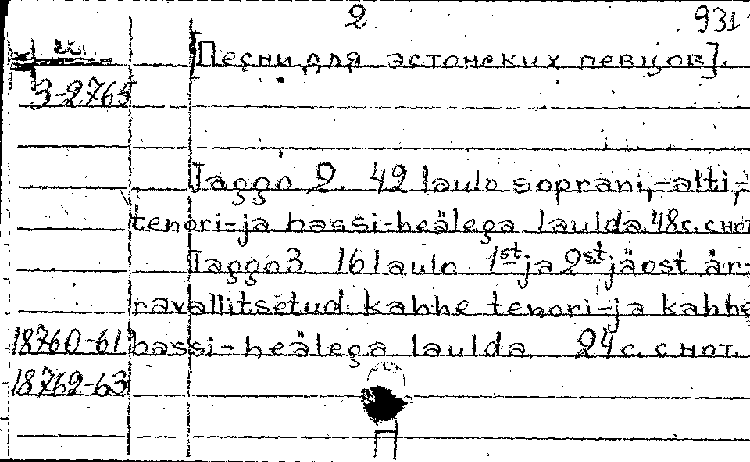 2 931
[Песни для эстонских певцов].
3-2765
Jaggo 2. 42 laulo soprani,-alti,-
tenori-ja bassi-heälega laulda. 48 с. с нот.
Jaggo 3 16 laulo 1st ja 2st jäost är-
ravallitsetud kahhe tenori-ja kahhe
18760-61 bassi-heälega laulda 24 с. с нот.
18762-63